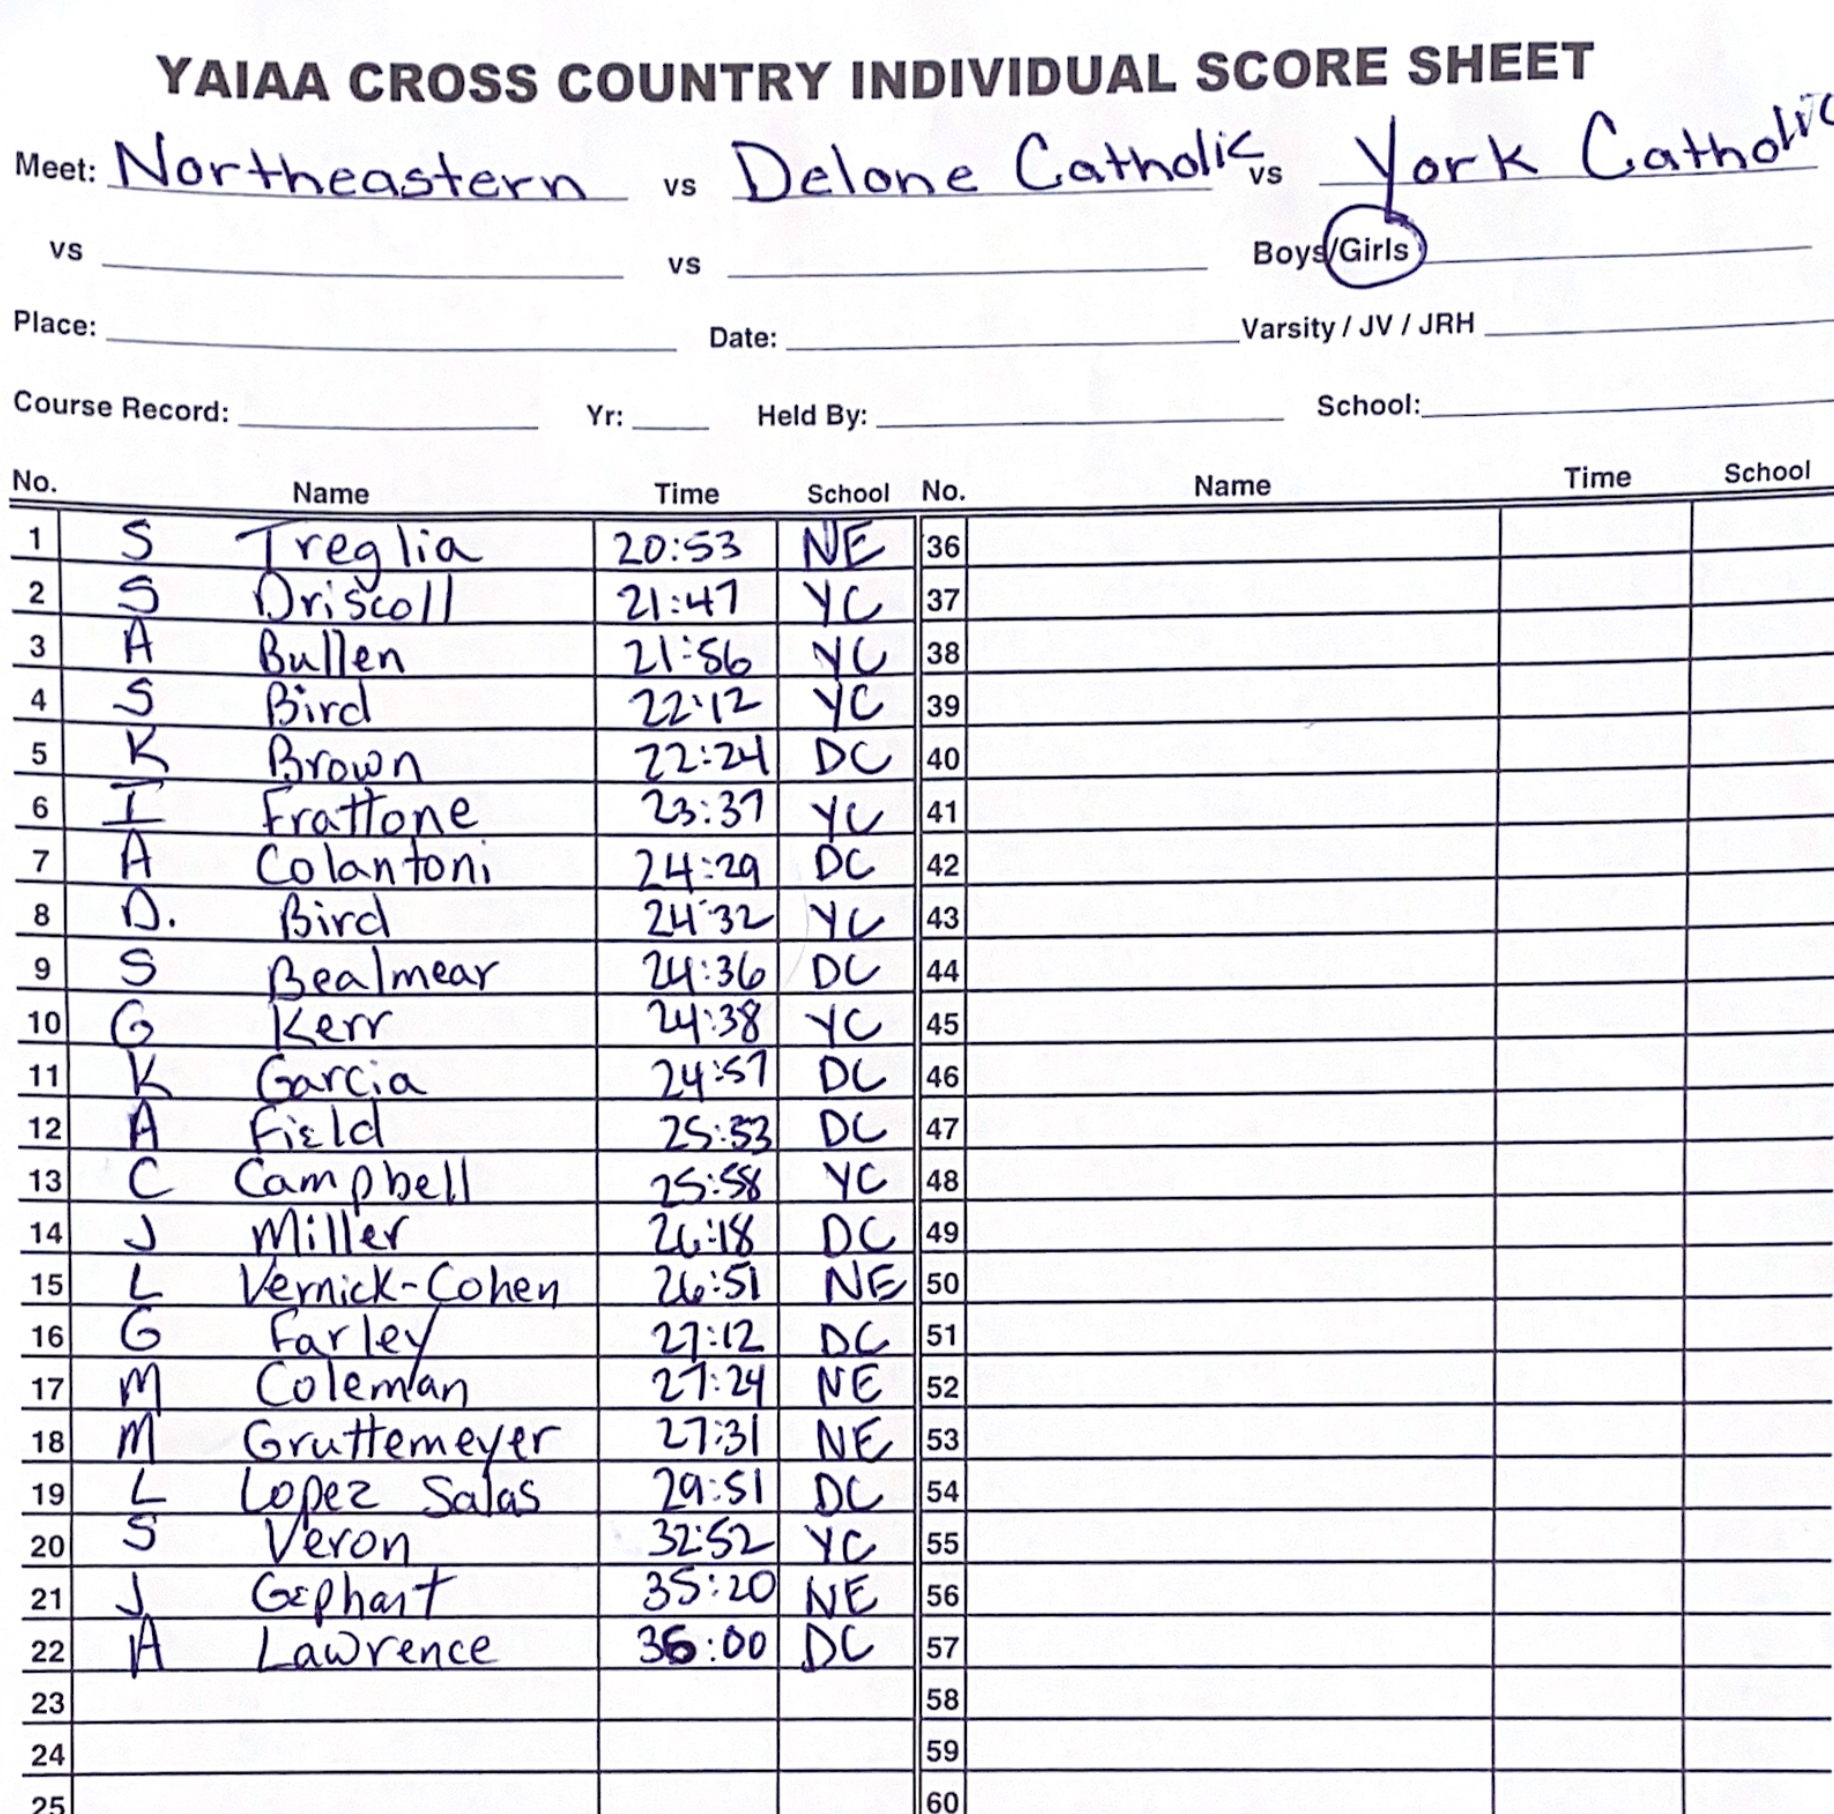 YAIAA CROSS COUNTRY INDIVIDUAL SCORE SHEET
Meet: Northeastern vs Delone Catholic vs York Catholic
vs vs Boys/Girls
Place: Date: Varsity / JV / JRH
Course Record: Yr: Held By: School:
No. Name Time School No. Name Time School
1 S Treglia 20:53 NE 36
2 S Driscoll 21:47 YC 37
3 A Bullen 21:56 YC 38
4 S Bird 22:12 YC 39
5 K Brown 22:24 DC 40
6 I Frattone 23:37 YC 41
7 A Colantoni 24:29 DC 42
8 D. Bird 24:32 YC 43
9 S Bealmear 24:36 DC 44
10 G Kerr 24:38 YC 45
11 K Garcia 24:57 DC 46
12 A Field 25:33 DC 47
13 C Campbell 25:58 YC 48
14 J Miller 26:18 DC 49
15 L Vernick-Cohen 26:51 NE 50
16 G Farley 27:12 DC 51
17 M Coleman 27:24 NE 52
18 M Gruttemeyer 27:31 NE 53
19 L Lopez Salas 29:51 DC 54
20 S Veron 32:52 YC 55
21 J Gephart 35:20 NE 56
22 A Lawrence 36:00 DC 57
23 58
24 59
25 60